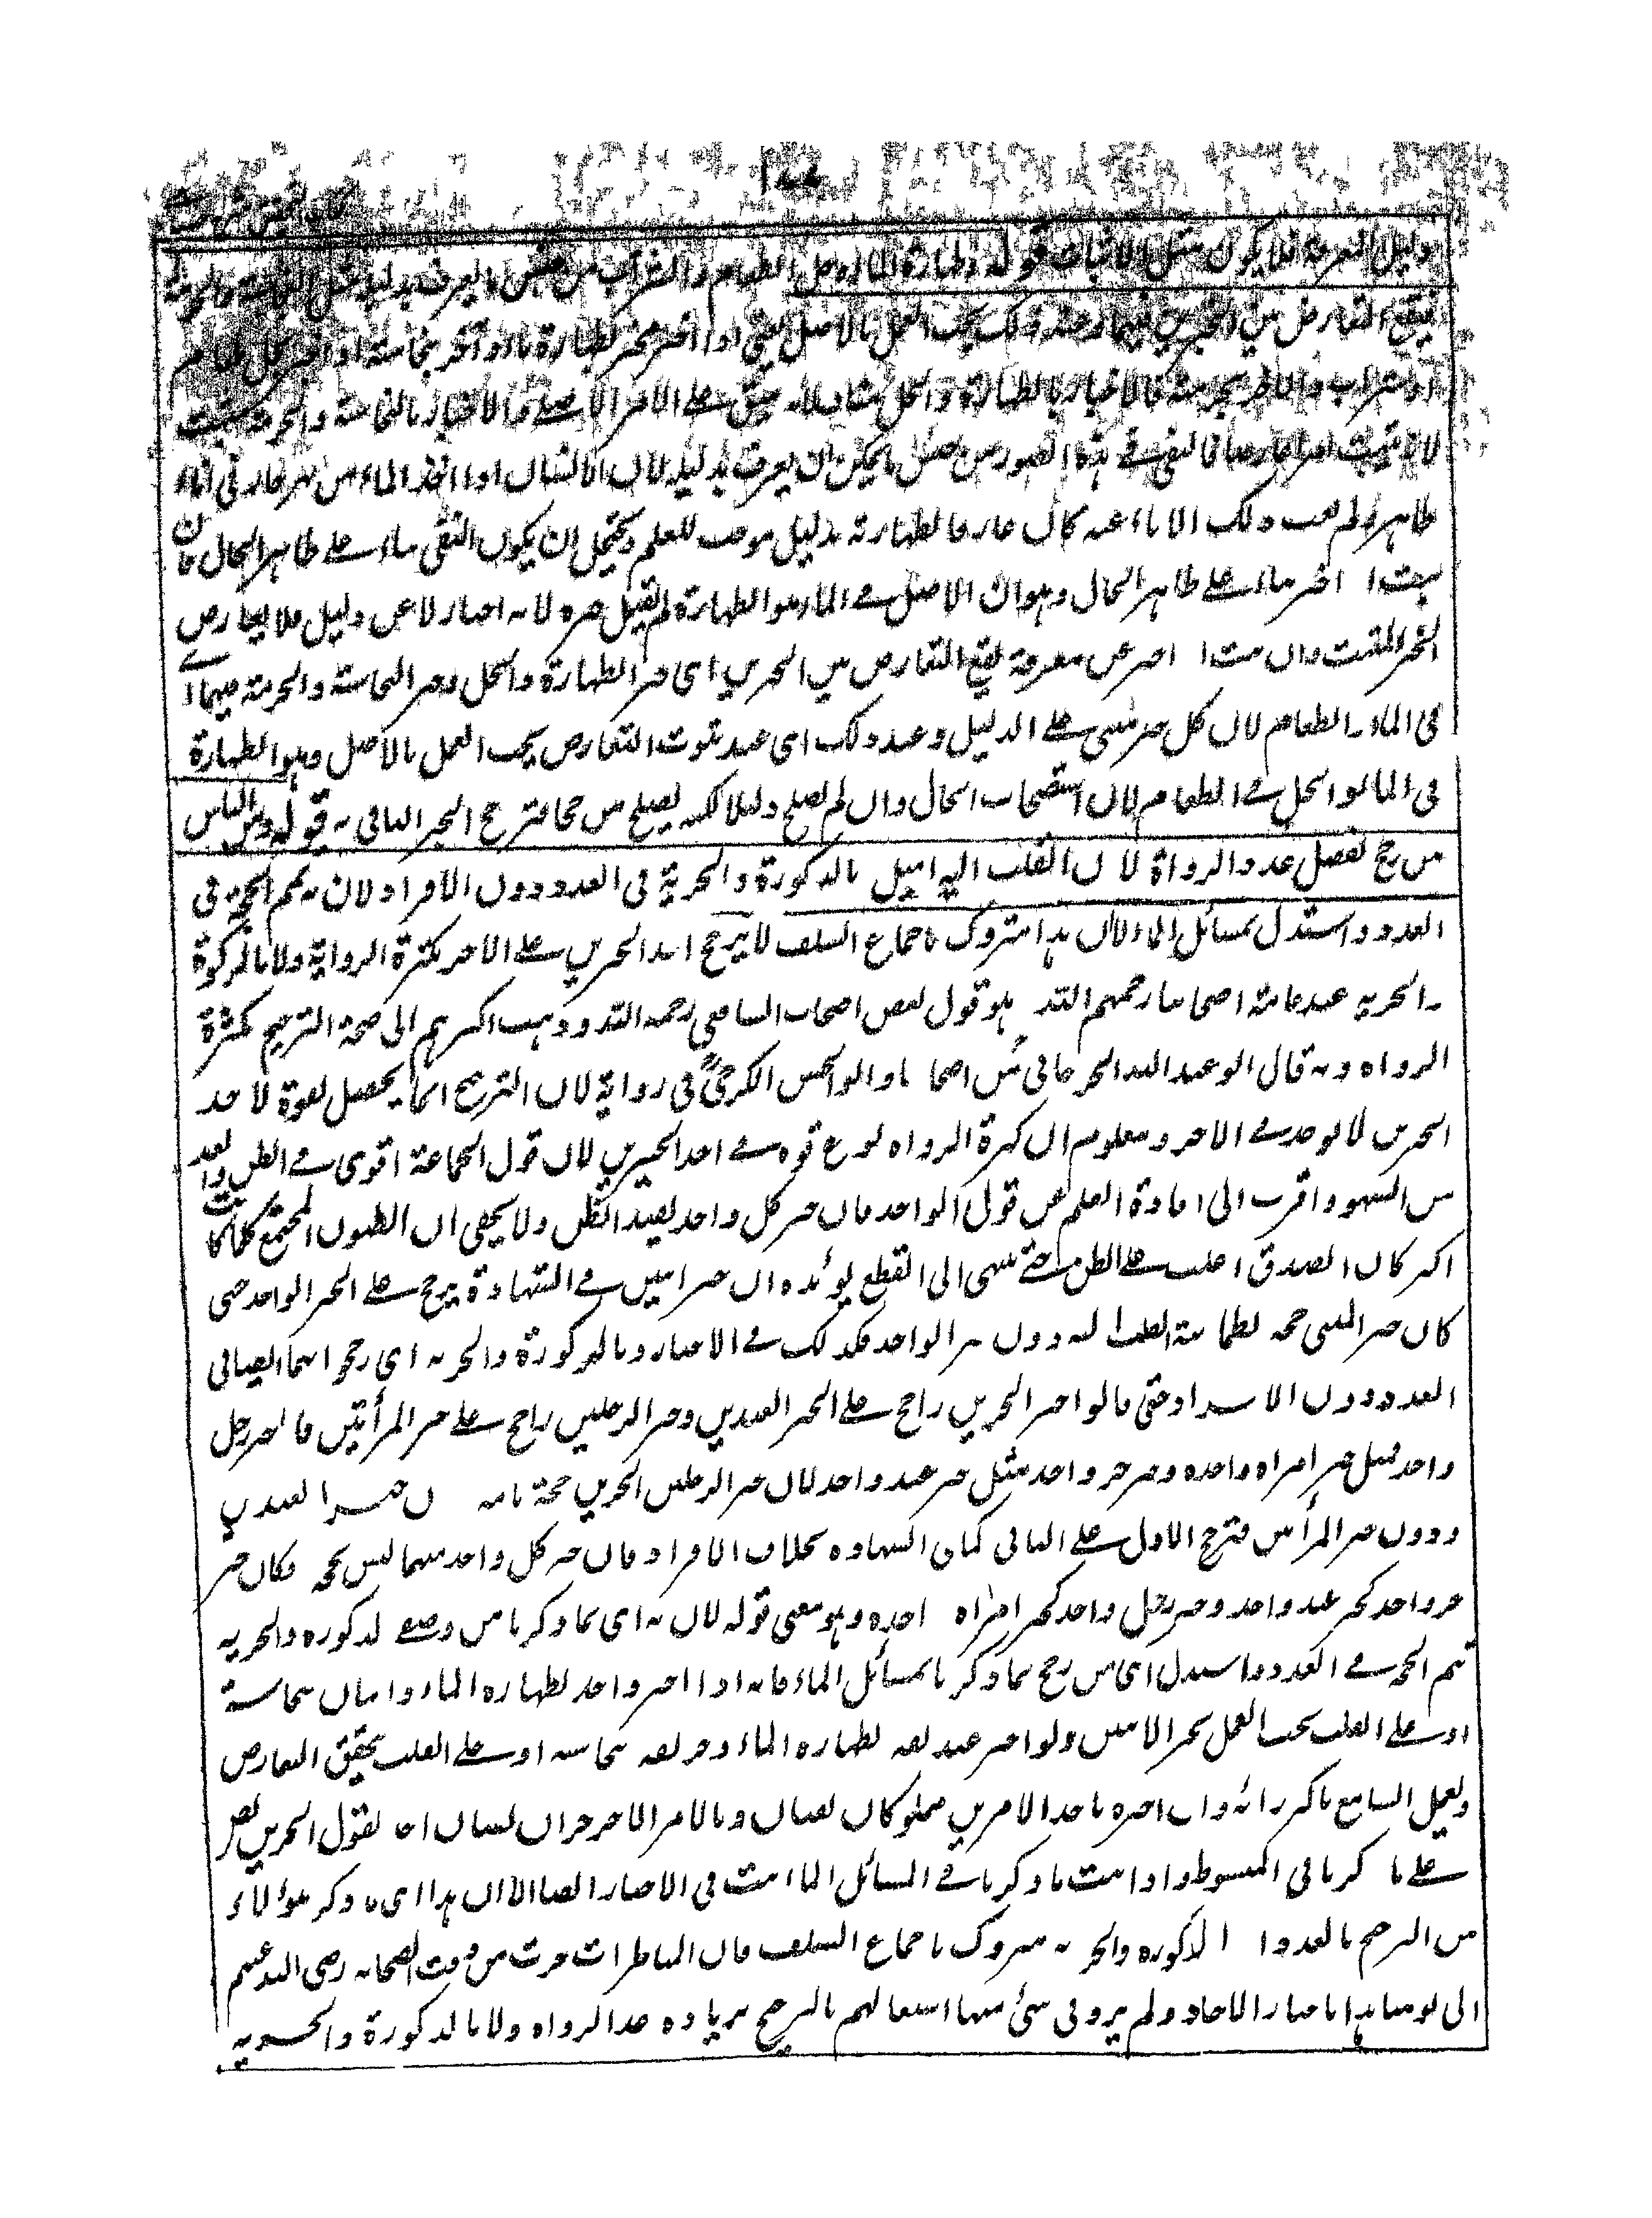 دليل المعرفة فلا يكون مثل الاثبات قوله وطهارة الماء وحل الطعام والشراب من جنس ما يعرف بدليله مثل النجاسة والحرمة
فيقع التعارض بين الخبرين فيهما وعند ذلك يجب العمل بالاصل يعنى اذا اخبر مخبر بطهارة ماء وآخر بنجاسته او اخبر بحل طعام
او شراب والآخر بحرمته فالاخبار بالطهارة والحل مبق على الامر الاصلى والاخبار بالنجاسة والحرمة مثبت
لانه يثبت امرا عارضا فالنفى فى هذه الصورة من جنس ما يمكن ان يعرف بدليله لان الانسان اذا اخذ الماء من نهر جار فى اناء
طاهر ولم يغب ذلك الاناء عنه كان عارفا بطهارته بدليل موجب للعلم ويحتمل ان يكون النفى بناء على ظاهر الحال فان
ثبت اخبر بناء على ظاهر الحال وهو ان الاصل فى الماء هو الطهارة لم يقبل خبره لانه اخبار لا عن دليل فلا يعارض
الخبر المثبت وان ثبت اخبر عن معرفة يقع التعارض بين الخبرين اى خبر الطهارة والحل وخبر النجاسة والحرمة فيهما اى
فى الماء والطعام لان كل خبر مبنى على الدليل وعند ذلك اى عند ثبوت التعارض يجب العمل بالاصل وهو الطهارة
فى الماء والحل فى الطعام لان استصحاب الحال وان لم يصلح دليلا لكنه يصلح مرجحا فترجح الخبر النافى به قوله ومن الناس
من رجح بفضل عدد الرواة لان القلب اليه اميل بالذكورة والحرية فى العدد دون الافراد لان به تتم الحجة فى
العدد واستدل بمسائل الماء الا ان هذا متروك باجماع السلف لا يترجح احد الخبرين على الآخر بكثرة الرواية ولا بالذكورة
والحرية عند عامة اصحابنا رحمهم الله وهو قول بعض اصحاب الشافعى رحمه الله وذهب اكثرهم الى صحة الترجيح بكثرة
الرواة وبه قال ابو عبد الله الجرجانى من اصحابنا وابو الحسن الكرخى فى رواية لان الترجيح انما يحصل بقوة لاحد
الخبرين لا يوجد فى الآخر ومعلوم ان كثرة الرواة نوع قوة فى احد الخبرين لان قول الجماعة اقوى فى الظن وابعد
من السهو واقرب الى افادة العلم من قول الواحد فان خبر كل واحد يفيد الظن ولا يخفى ان الظنون المجتمعة كلما كانت
اكثر كان الصدق اغلب على الظن حتى ينتهى الى القطع يؤيده ان خبر اثنين فى الشهادة يرجح على الخبر الواحد حتى
كان خبر المثنى حجة لطمانينة القلب اليه دون خبر الواحد فكذلك فى الاخبار وبالذكورة والحرية اى رجحوا بهما ايضا فى
العدد دون الافراد حتى قالوا خبر الحرين راجح على الخبر العبدين وخبر الرجلين راجح على خبر المرأتين فاما خبر رجل
واحد مثل خبر امراة واحدة وخبر حر واحد مثل خبر عبد واحد لان خبر الرجلين الحرين حجة تامة دون خبر العبدين
ودون خبر المرأتين فترجح الاول على الثانى كما فى الشهادة بخلاف الافراد فان خبر كل واحد منهما ليس بحجة فكان خبر
حر واحد كخبر عبد واحد وخبر رجل واحد كخبر امراة واحدة وهو معنى قوله لان به اى بما ذكرنا من وصفى الذكورة والحرية
تتم الحجة فى العدد واستدل اى من رجح بما ذكرنا بمسائل الماء فانه اذا اخبر واحد بطهارة الماء واثنان بنجاسته
او على القلب يجب العمل بخبر الاثنين ولو اخبر عبد ثقة بطهارة الماء وحر ثقة بنجاسته او على القلب يتحقق التعارض
ويعمل السامع باكبر رائه وان اخبره باحد الامرين مملوكان ثقتان وبالامر الآخر حران ثقتان اخذ بقول الحرين نص
على ما ذكرنا فى المبسوط واذا ثبت ما ذكرنا فى المسائل الماء ثبت فى الاخبار ايضا الا ان هذا اى ما ذكر هؤلاء
من الترجيح بالعدد والذكورة والحرية متروك باجماع السلف فان المناظرات جرت من وقت الصحابة رضى الله عنهم
الى يومنا هذا باخبار الآحاد ولم يرو فى شئ منها استعمالهم بالترجيح بزيادة عدد الرواة ولا بالذكورة والحرية